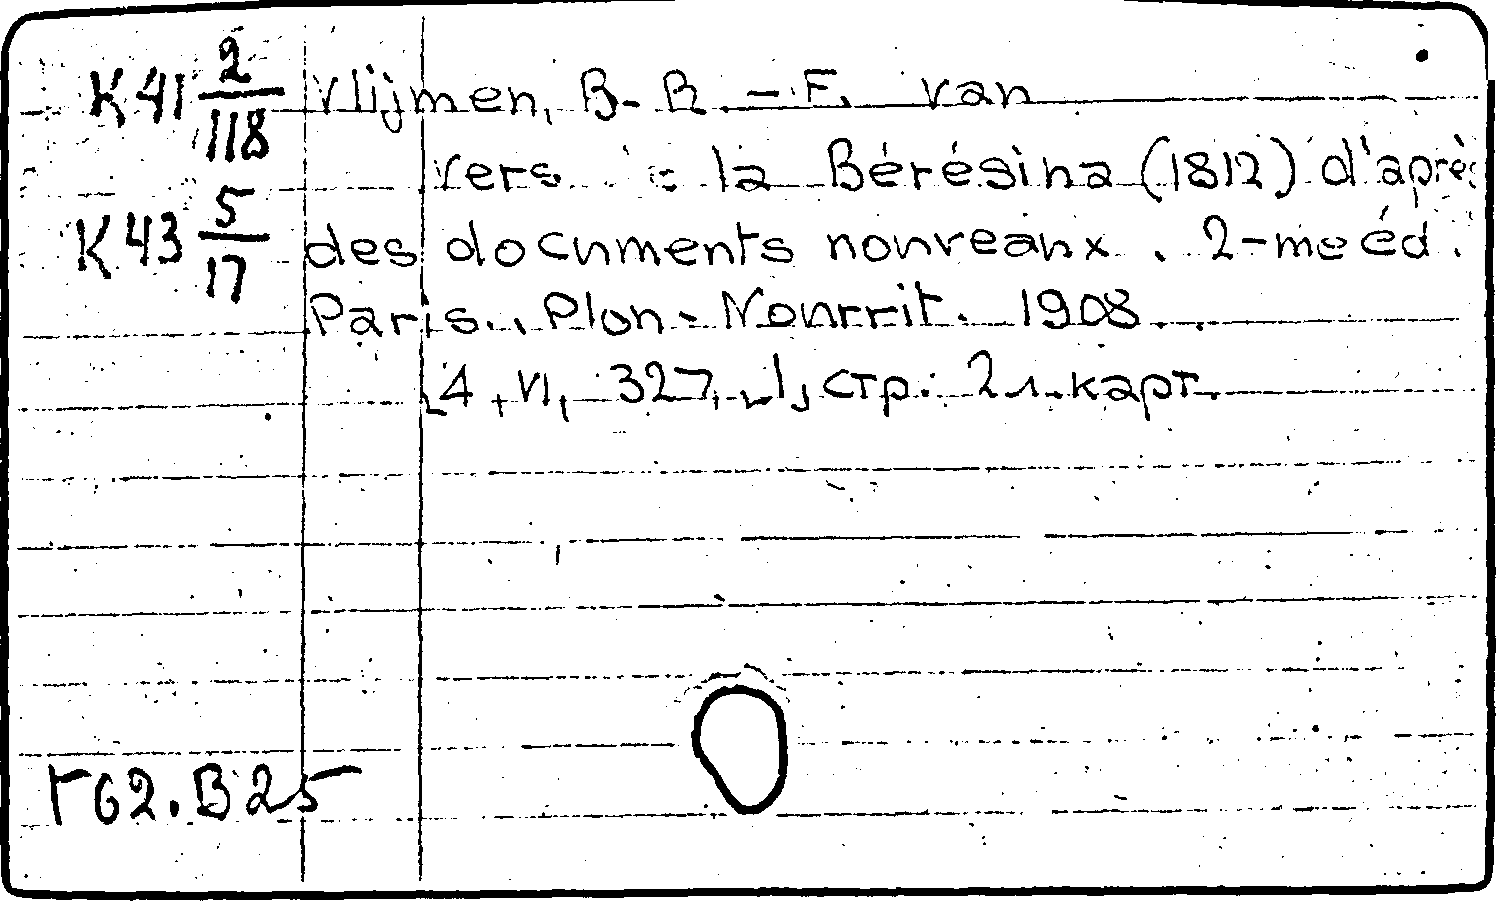 K41 2/118 Vlijmen, B.-R.-F. van
Vers : la Bérésina (1812) d'après
K43 5/17 des documents nouveaux. 2-me éd.
Paris., Plon-Nourrit. 1908.
[4, VI, 327, 1] стр. 2 л. карт.
Г62.В25